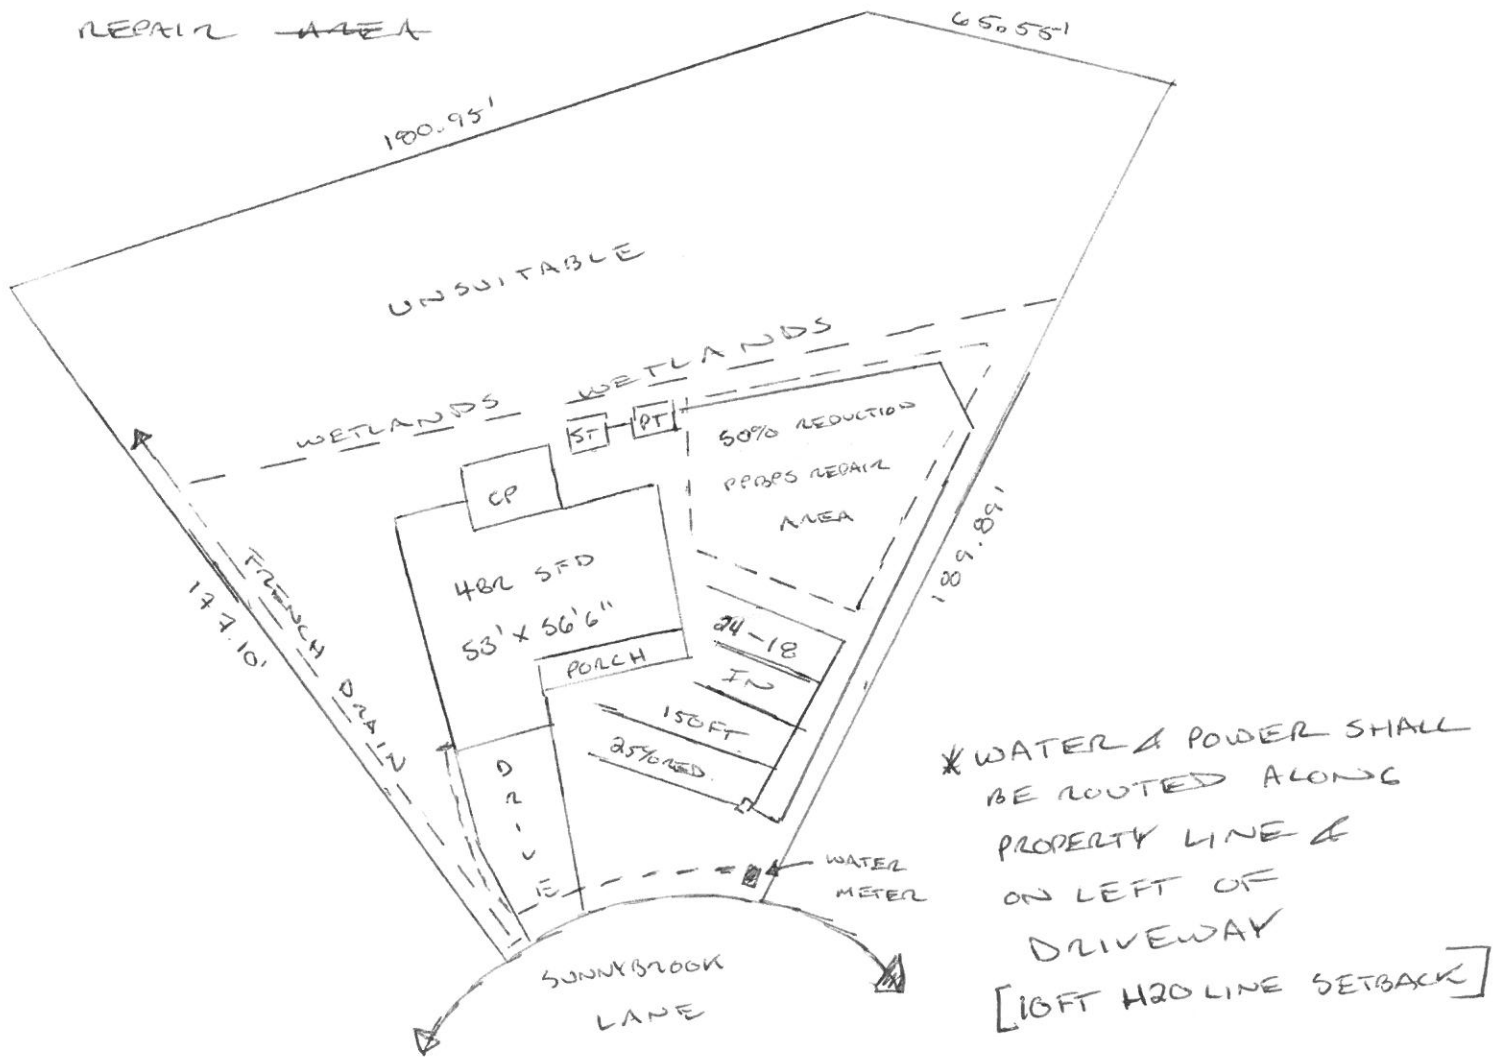 REPAIR AREA
65.55'
180.95'
UNSUITABLE
WETLANDS WETLANDS
ST
PT
50% REDUCTION
PPBPS REPAIR
AREA
CP
4BR SFD
53' X 56'6"
PORCH
FRENCH DRAIN
177.10'
189.89'
24-18
IN
150FT
25% RED.
DRIVE
WATER
METER
SUNNYBROOK
LANE
* WATER & POWER SHALL
BE ROUTED ALONG
PROPERTY LINE &
ON LEFT OF
DRIVEWAY
[10FT H2O LINE SETBACK]